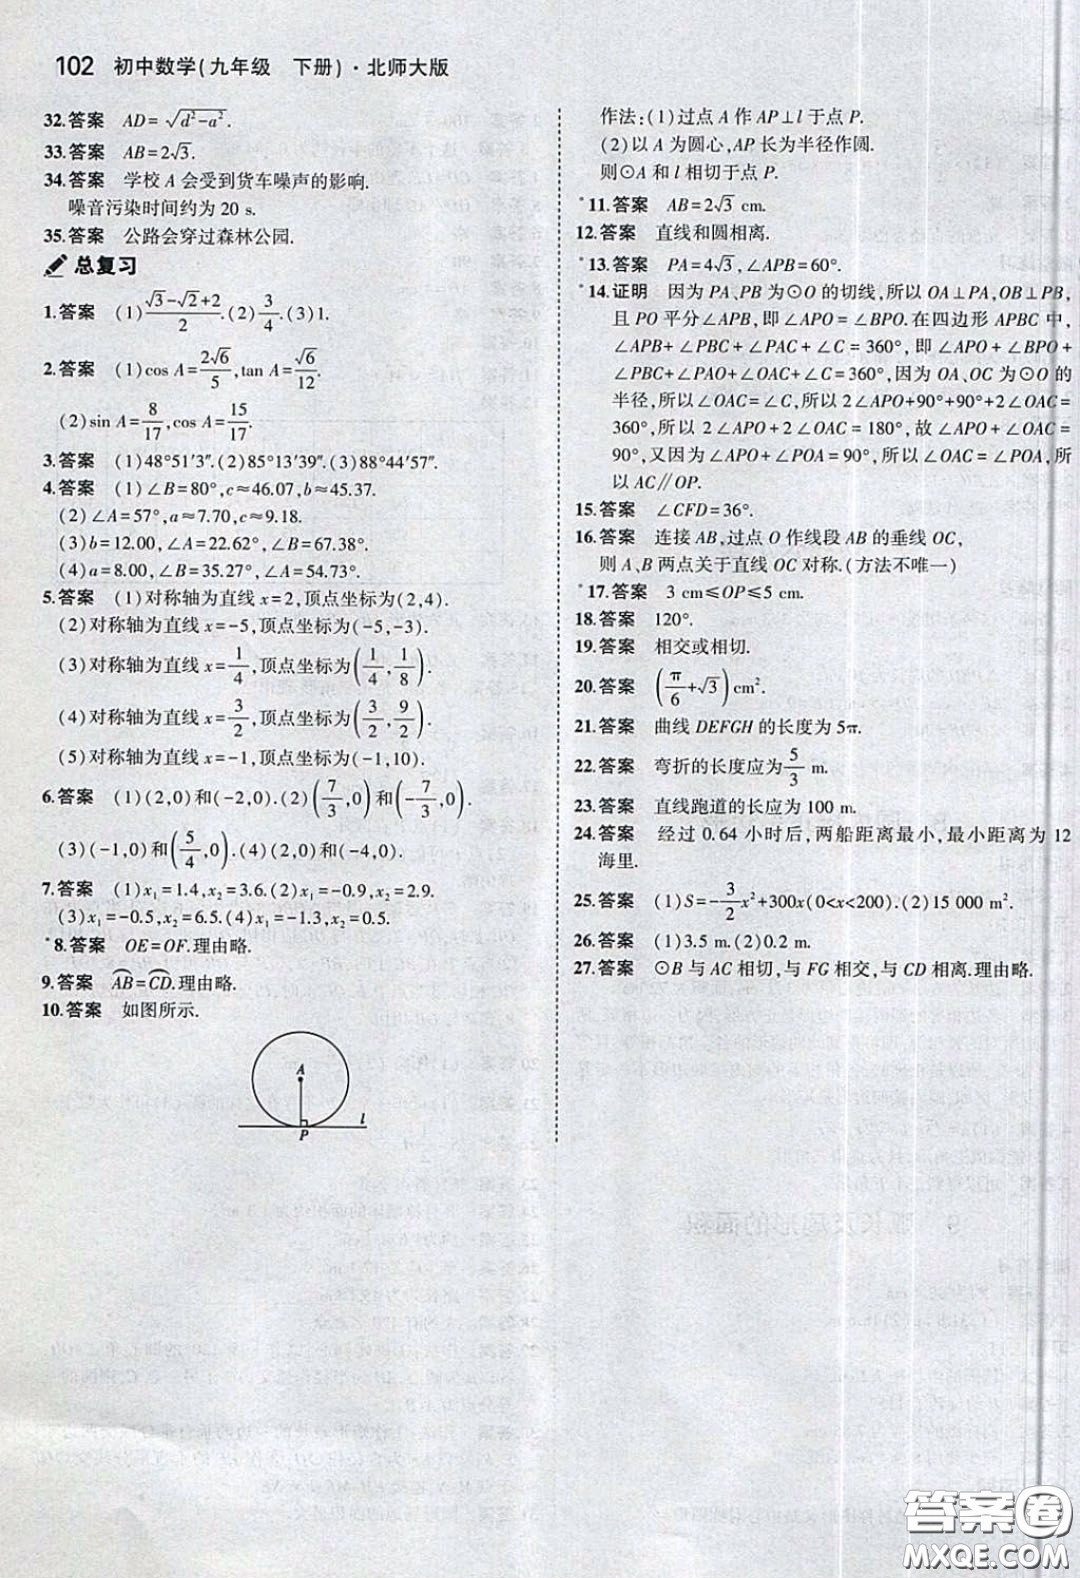 102 初中数学(九年级 下册)·北师大版
32.答案 AD=√(d²-a²).
33.答案 AB=2√3.
34.答案 学校 A 会受到货车噪声的影响.
噪音污染时间约为 20 s.
35.答案 公路会穿过森林公园.
总复习
1.答案 (1)(√3-√2+2)/2.(2)3/4.(3)1.
2.答案 (1)cos A=2√6/5,tan A=√6/12.
(2)sin A=8/17,cos A=15/17.
3.答案 (1)48°51′3″.(2)85°13′39″.(3)88°44′57″.
4.答案 (1)∠B=80°,c≈46.07,b≈45.37.
(2)∠A=57°,a≈7.70,c≈9.18.
(3)b=12.00,∠A≈22.62°,∠B≈67.38°.
(4)a≈8.00,∠B≈35.27°,∠A≈54.73°.
5.答案 (1)对称轴为直线 x=2,顶点坐标为(2,4).
(2)对称轴为直线 x=-5,顶点坐标为(-5,-3).
(3)对称轴为直线 x=1/4,顶点坐标为(1/4,1/8).
(4)对称轴为直线 x=3/2,顶点坐标为(3/2,9/2).
(5)对称轴为直线 x=-1,顶点坐标为(-1,10).
6.答案 (1)(2,0)和(-2,0).(2)(7/3,0)和(-7/3,0).
(3)(-1,0)和(5/4,0).(4)(2,0)和(-4,0).
7.答案 (1)x₁=1.4,x₂=3.6.(2)x₁=-0.9,x₂=2.9.
(3)x₁=-0.5,x₂=6.5.(4)x₁=-3,x₂=0.5.
*8.答案 OE=OF.理由略.
9.答案 A͡B=C͡D.理由略.
10.答案 如图所示.
A
P
l
作法:(1)过点 A 作 AP⊥l 于点 P.
(2)以 A 为圆心,AP 长为半径作圆.
则⊙A 和 l 相切于点 P.
*11.答案 AB=2√3 cm.
12.答案 直线和圆相离.
*13.答案 PA=4√3,∠APB=60°.
*14.证明 因为 PA、PB 为⊙O 的切线,所以 OA⊥PA,OB⊥PB,
且 PO 平分∠APB,即∠APO=∠BPO.在四边形 APBC 中,
∠APB+∠PBC+∠PAC+∠C=360°,即∠APO+∠BPO+
∠PBC+∠PAO+∠OAC+∠C=360°,因为 OA、OC 为⊙O 的
半径,所以∠OAC=∠C,所以 2∠APO+90°+90°+2∠OAC=
360°,所以 2∠APO+2∠OAC=180°,故∠APO+∠OAC=
90°,又因为∠APO+∠POA=90°,所以∠OAC=∠POA,所
以 AC∥OP.
15.答案 ∠CFD=36°.
16.答案 连接 AB,过点 O 作线段 AB 的垂线 OC,
则 A、B 两点关于直线 OC 对称.(方法不唯一)
*17.答案 3 cm≤OP≤5 cm.
18.答案 120°.
19.答案 相交或相切.
20.答案 (π/6+√3)cm².
21.答案 曲线 DEFGH 的长度为 5π.
22.答案 弯折的长度应为5/3 m.
23.答案 直线跑道的长应为 100 m.
24.答案 经过 0.64 小时后,两船距离最小,最小距离为 12
海里.
25.答案 (1)S=-3/2x²+300x(0<x<200).(2)15 000 m².
26.答案 (1)3.5 m.(2)0.2 m.
27.答案 ⊙B 与 AC 相切,与 FG 相交,与 CD 相离.理由略.
答案圈
MXQE.COM